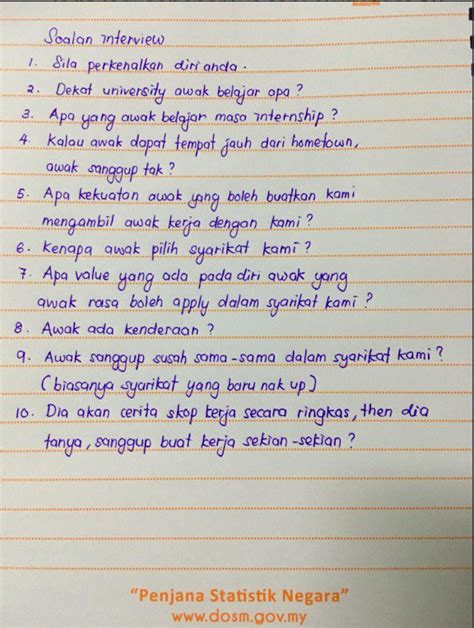 Soalan interview
1. Sila perkenalkan diri anda.
2. Dekat university awak belajar apa?
3. Apa yang awak belajar masa internship?
4. Kalau awak dapat tempat jauh dari hometown,
awak sanggup tak?
5. Apa kekuatan awak yang boleh buatkan kami
mengambil awak kerja dengan kami?
6. Kenapa awak pilih syarikat kami?
7. Apa value yang ada pada diri awak yang
awak rasa boleh apply dalam syarikat kami?
8. Awak ada kenderaan?
9. Awak sanggup susah sama-sama dalam syarikat kami?
(biasanya syarikat yang baru nak up)
10. Dia akan cerita skop kerja secara ringkas, then dia
tanya, sanggup buat kerja sekian-sekian?
"Penjana Statistik Negara"
www.dosm.gov.my